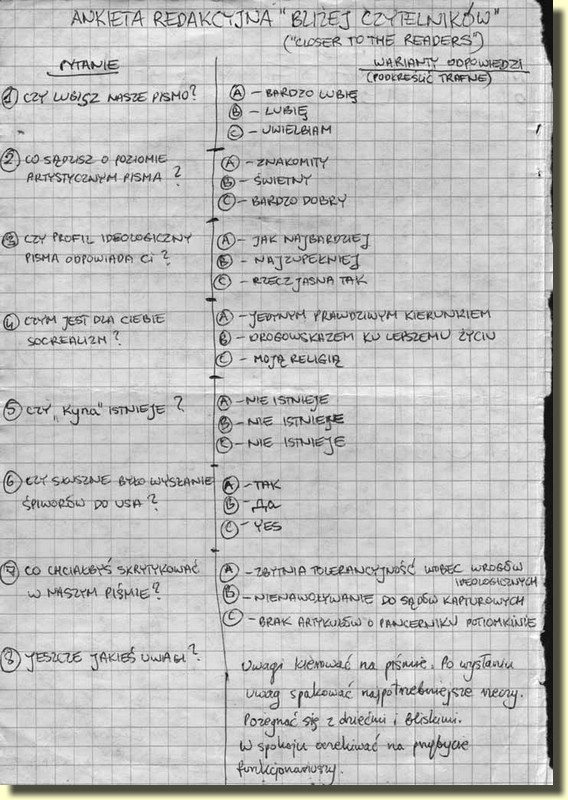 ANKIETA REDAKCYJNA "BLIŻEJ CZYTELNIKÓW"
("CLOSER TO THE READERS")
PYTANIE
WARIANTY ODPOWIEDZI
(PODKREŚLIĆ TRAFNE)
1 CZY LUBISZ NASZE PISMO?
A - BARDZO LUBIĘ
B - LUBIĘ
C - UWIELBIAM
2 CO SĄDZISZ O POZIOMIE
ARTYSTYCZNYM PISMA ?
A - ZNAKOMITY
B - ŚWIETNY
C - BARDZO DOBRY
3 CZY PROFIL IDEOLOGICZNY
PISMA ODPOWIADA CI ?
A - JAK NAJBARDZIEJ
B - NAJZUPEŁNIEJ
C - RZECZ JASNA TAK
4 CZYM JEST DLA CIEBIE
SOCREALIZM ?
A - JEDYNYM PRAWDZIWYM KIERUNKIEM
B - DROGOWSKAZEM KU LEPSZEMU ŻYCIU
C - MOJĄ RELIGIĄ
5 CZY „Kyna" ISTNIEJE ?
A - NIE ISTNIEJE
B - NIE ISTNIEJE
C - NIE ISTNIEJE
6 CZY SŁUSZNE BYŁO WYSŁANIE
ŚPIWORÓW DO USA ?
A - TAK
B - ДА
C - YES
7 CO CHCIAŁBYŚ SKRYTYKOWAĆ
W NASZYM PIŚMIE ?
A - ZBYTNIA TOLERANCYJNOŚĆ WOBEC WROGÓW
IDEOLOGICZNYCH
B - NIENAWOŁYWANIE DO SĄDÓW KAPTUROWYCH
C - BRAK ARTYKUŁÓW O PANCERNIKU POTIOMKINIE
8 JESZCZE JAKIEŚ UWAGI ?
Uwagi kierować na piśmie. Po wysłaniu
uwag spakować najpotrzebniejsze rzeczy.
Pożegnać się z dziećmi i bliskimi.
W spokoju oczekiwać na przybycie
funkcjonariuszy.